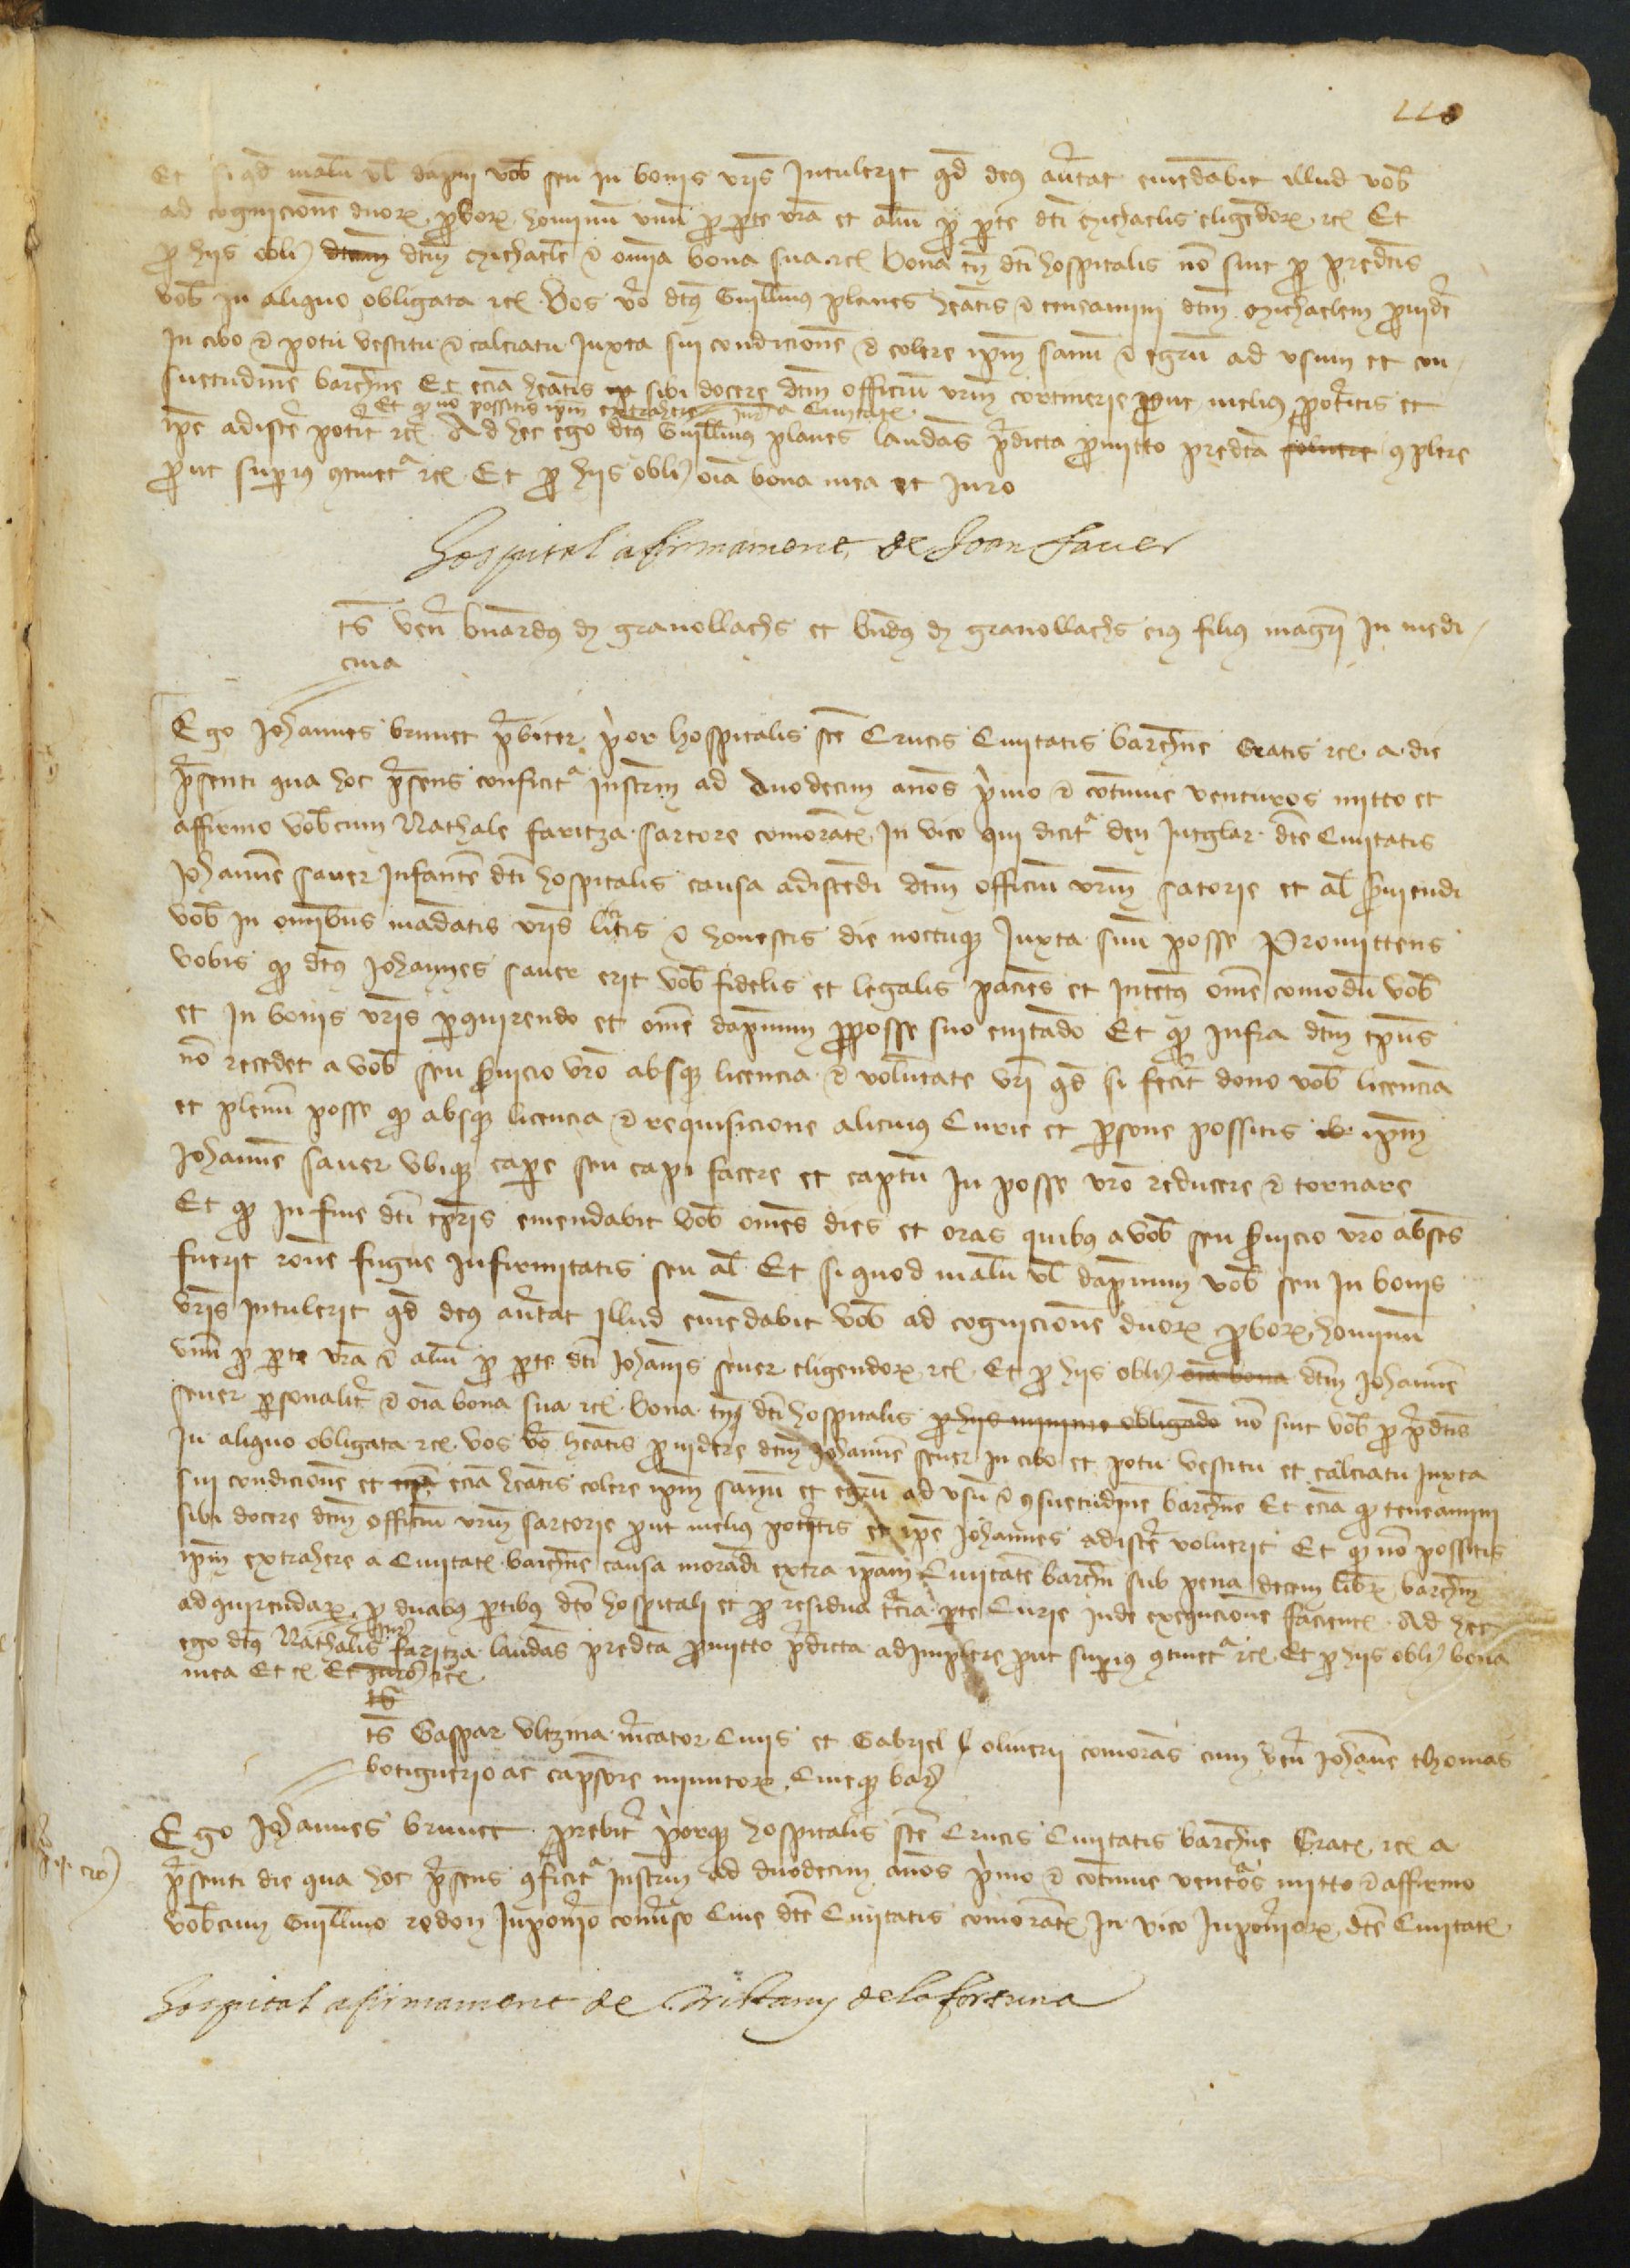 220
Et si qd malu vl dapnu vob seu in bonis vris intulerit qd deus avertat emendabit illud vob
ad cognicione duorum proborum hominu unu pro parte vra et aliu pro parte dti Michaelis eligendorum etc Et
pro hiis obli dtum dtm Michaele et omnia bona sua etc bona tn dti hospitalis no sint pro predtis
vob in aliquo obligata etc Vos vo dtus Guillmus planes heatis et teneamini dtm Michaelem providere
in cibo et potu vestitu et calciatu iuxta sui condicione et colere ipm sanu et egru ad usum et con
suetudine barchne Et ecia heatis sibi docere dtm officiu vrm cortinerie prout melius poteritis et
Et quod no possitis ipm extrahere a Civitate
ipe adiscere poterit etc Ad hec ego dtus Guillmus planes laudans predicta promitto predta solvere complere
prout superius continetur etc Et pro hiis obli oia bona mea et juro
Hospital afirmament de Joan Saver
ts ven bnardus de granollachs et bndus de granollachs eius filius magri in medi
cina
Ego Johannes brunet prbiter prior hospitalis ste Crucis Civitatis barchne Gratis etc a die
presenti qua hoc presens conficitur instrm ad duodecim annos primo et continue venturos mitto et
affirmo vobcum Nathale faritza sartore comorate in vico qui dicitur den Jutglar dte Civitatis
Johanne saver infante dti hospitalis causa adiscendi dtm officiu vrm sartorie et al serviendi
vob in omnibus mandatis vris licitis et honestis die noctuque iuxta suu posse Promittens
vobis quod dtus Johannes saver erit vob fidelis et legalis paciens et intentus ome comodu vob
et in bonis vris perquirendo et ome dapnum proposse suo evitando Et quod infra dtm tpus
no recedet a vob seu servicio vro absque licencia et voluntate vri qd si fecerit dono vob licencia
et plenu posse quod absque licencia et requisicione alicuius Curie et persone possitis ipm
Johanne saver ubique capere seu capi facere et captu in posse vro reducere et tornare
Et quod in fine dti tpris emendabit vob omes dies et oras quibus a vob seu servicio vro absens
fuerit rone fugue infirmitatis seu al Et si quod malu vl dapnum vob seu in bonis
vris intulerit qd deus avertat illud emendabit vob ad cognicione duorum proborum hominu
unu pro parte vra et aliu pro parte dti Johanis sever eligendorum etc Et pro hiis obli oia bona dtm Johanne
sever personaliter et oia bona sua etc bona tn dti hospitalis pro hiis minime obligado no sint vob pro predtis
in aliquo obligata etc vos vo heatis providere dtm Johanne sever in cibo et potu vestitu et calciatu iuxta
sui condicione et ecia heatis colere ipm sanu et egru ad usu et consuetudine barchne Et ecia quod teneamini
sibi docere dtm officiu vrm sartorie prout melius poteritis et ipe Johannes adiscere voluerit Et quod no possitis
ipm extrahere a Civitate barchne causa morandi extra ipam Civitate barchn sub pena decem librarum barchn
adquirendarum pro duabus partibus dto hospitali et pro residua tercia parte Curie inde execucione faciente Ad hec
ego dtus Nathalis faritza laudans predta promitto predicta adimplere prout superius continetur etc Et pro hiis obli bona
mea Et etc Et juro etc
ts Gaspar ultzina mercator Civis et Gabriel oliverii comorans cum ven Johanne thomas
botiguerio ac capsore minutorum Civeque bar
Ego Johannes brunet prebiter priorque hospitalis ste Crucis Civitatis barchne Gratis etc a
presenti die qua hoc presens conficitur instrm ad duodecim annos primo et continue venturos mitto et affirmo
vobcum Guillmo redon juponerio converso Cive dte Civitatis comorante in vico juponeriorum dte Civitatis
Hospital afirmament de Cristany de la fortuna